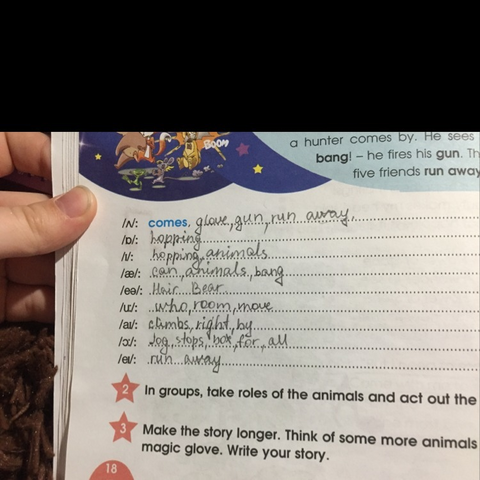 BOOM
a hunter comes by. He sees
bang! – he fires his gun. Th
five friends run away
/ʌ/: comes, glove, gun, run away.
/ɒ/: hopping
/ɪ/: hopping, animals
/æ/: can, animals, bang
/eə/: Hair Bear
/uː/: who, room, move
/aɪ/: climbs, right, by
/ɔː/: dog, stops, box, for, all
/eɪ/: run away
2 In groups, take roles of the animals and act out the
3 Make the story longer. Think of some more animals
magic glove. Write your story.
18